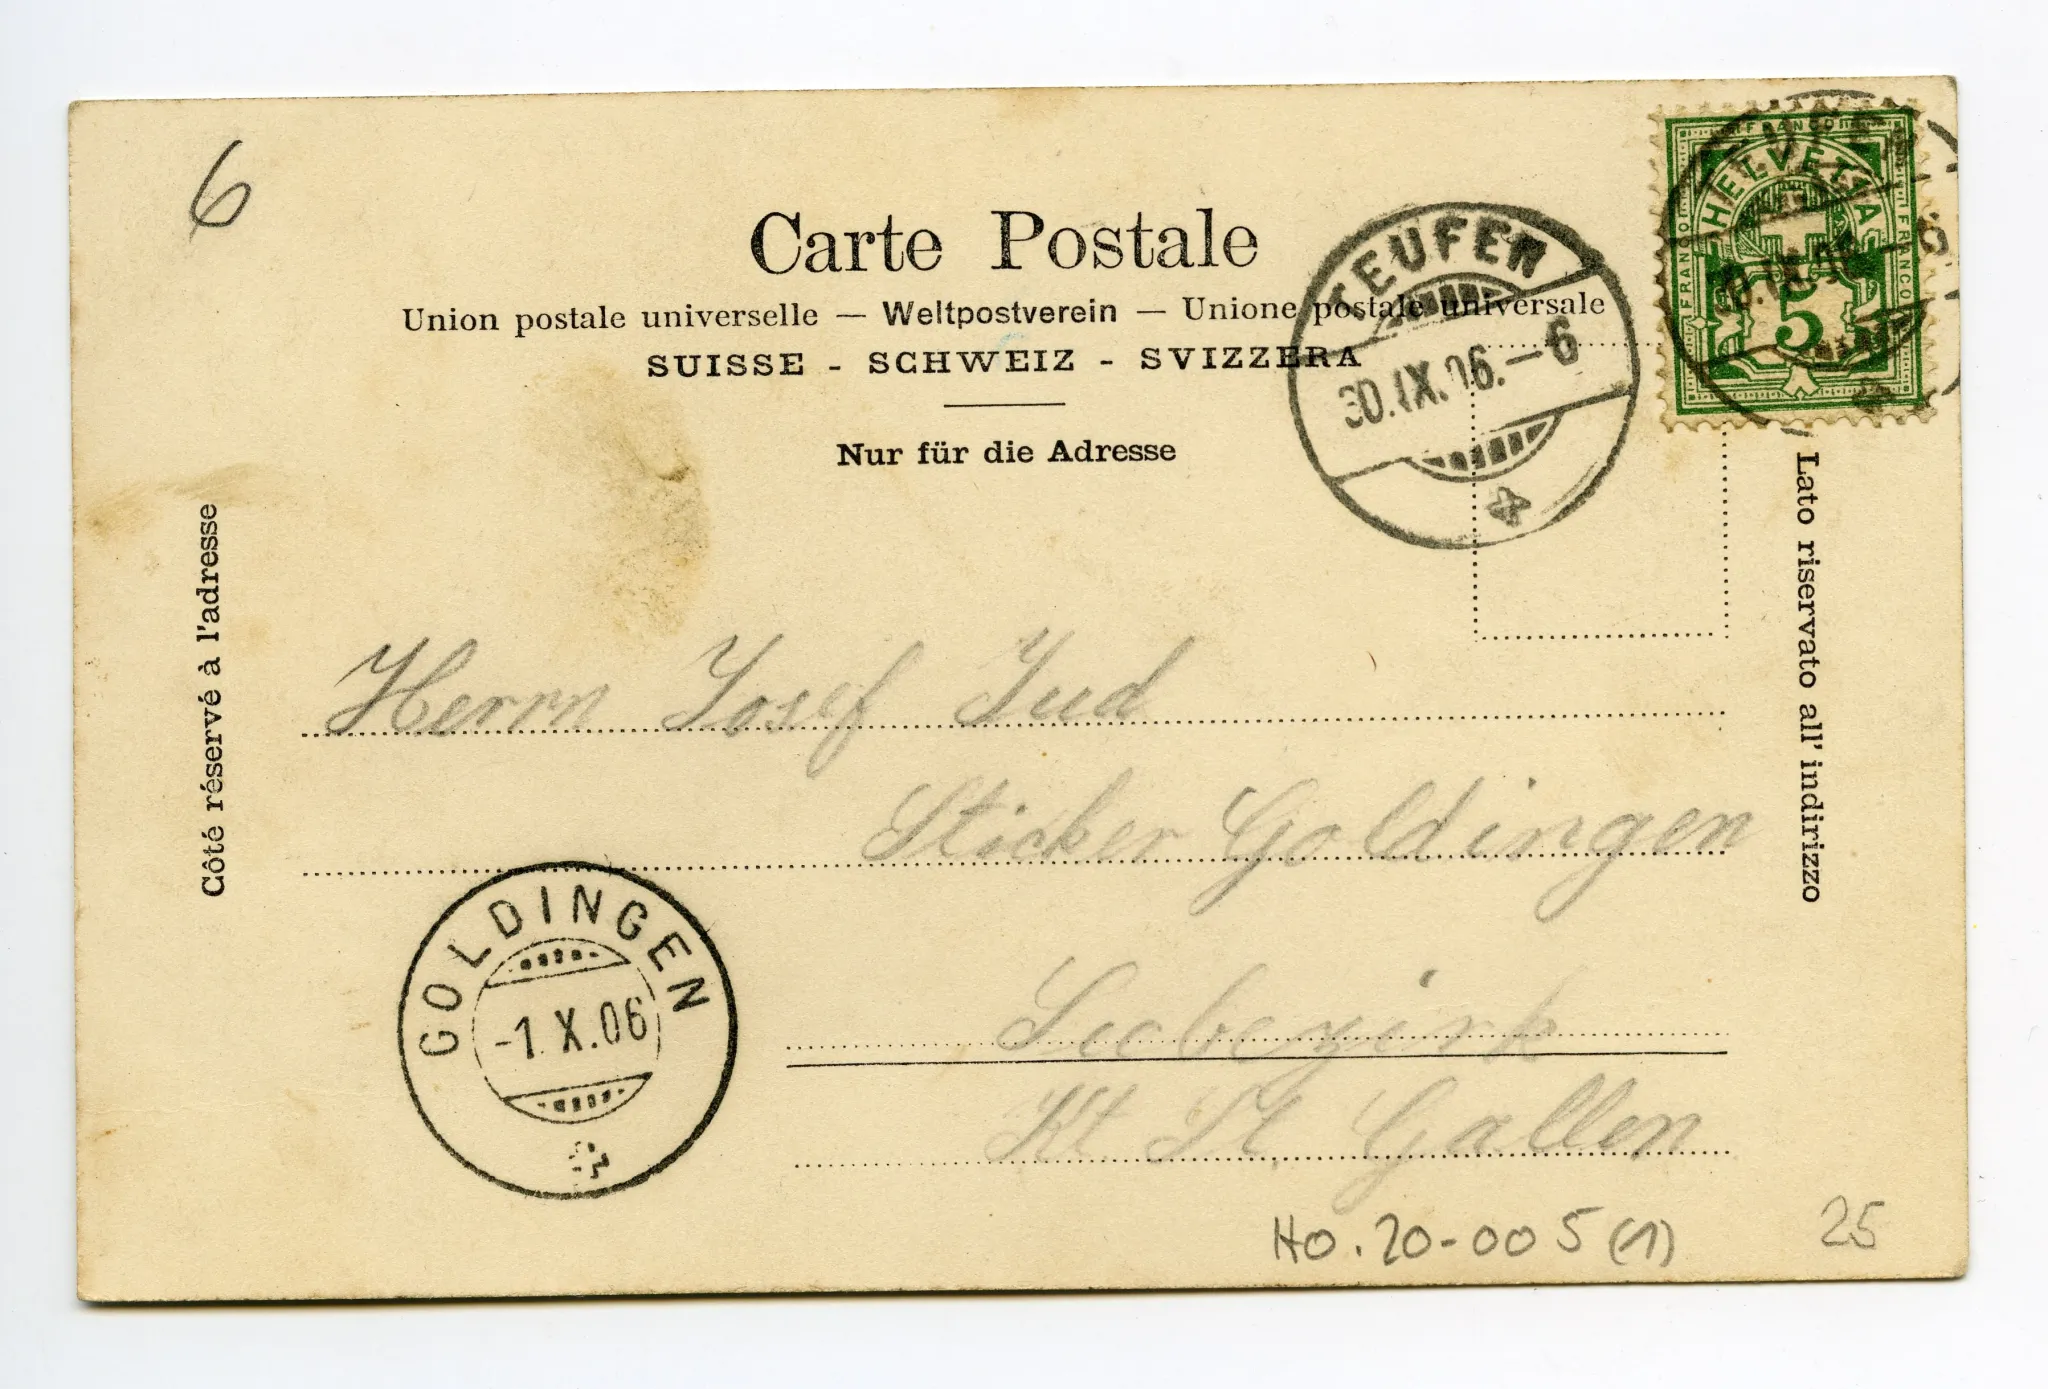 6
Carte Postale
Union postale universelle — Weltpostverein — Unione postale universale
SUISSE - SCHWEIZ - SVIZZERA
Nur für die Adresse
TEUFEN
30.IX.06.-6
FRANCO
HELVETIA
FRANCO
FRANCO
5
Côté réservé à l'adresse
Lato riservato all' indirizzo
Herrn Josef Jud
Sticker Goldingen
Seebezirk
Kt St. Gallen
GOLDINGEN
-1.X.06
HO.20-005(1)
25